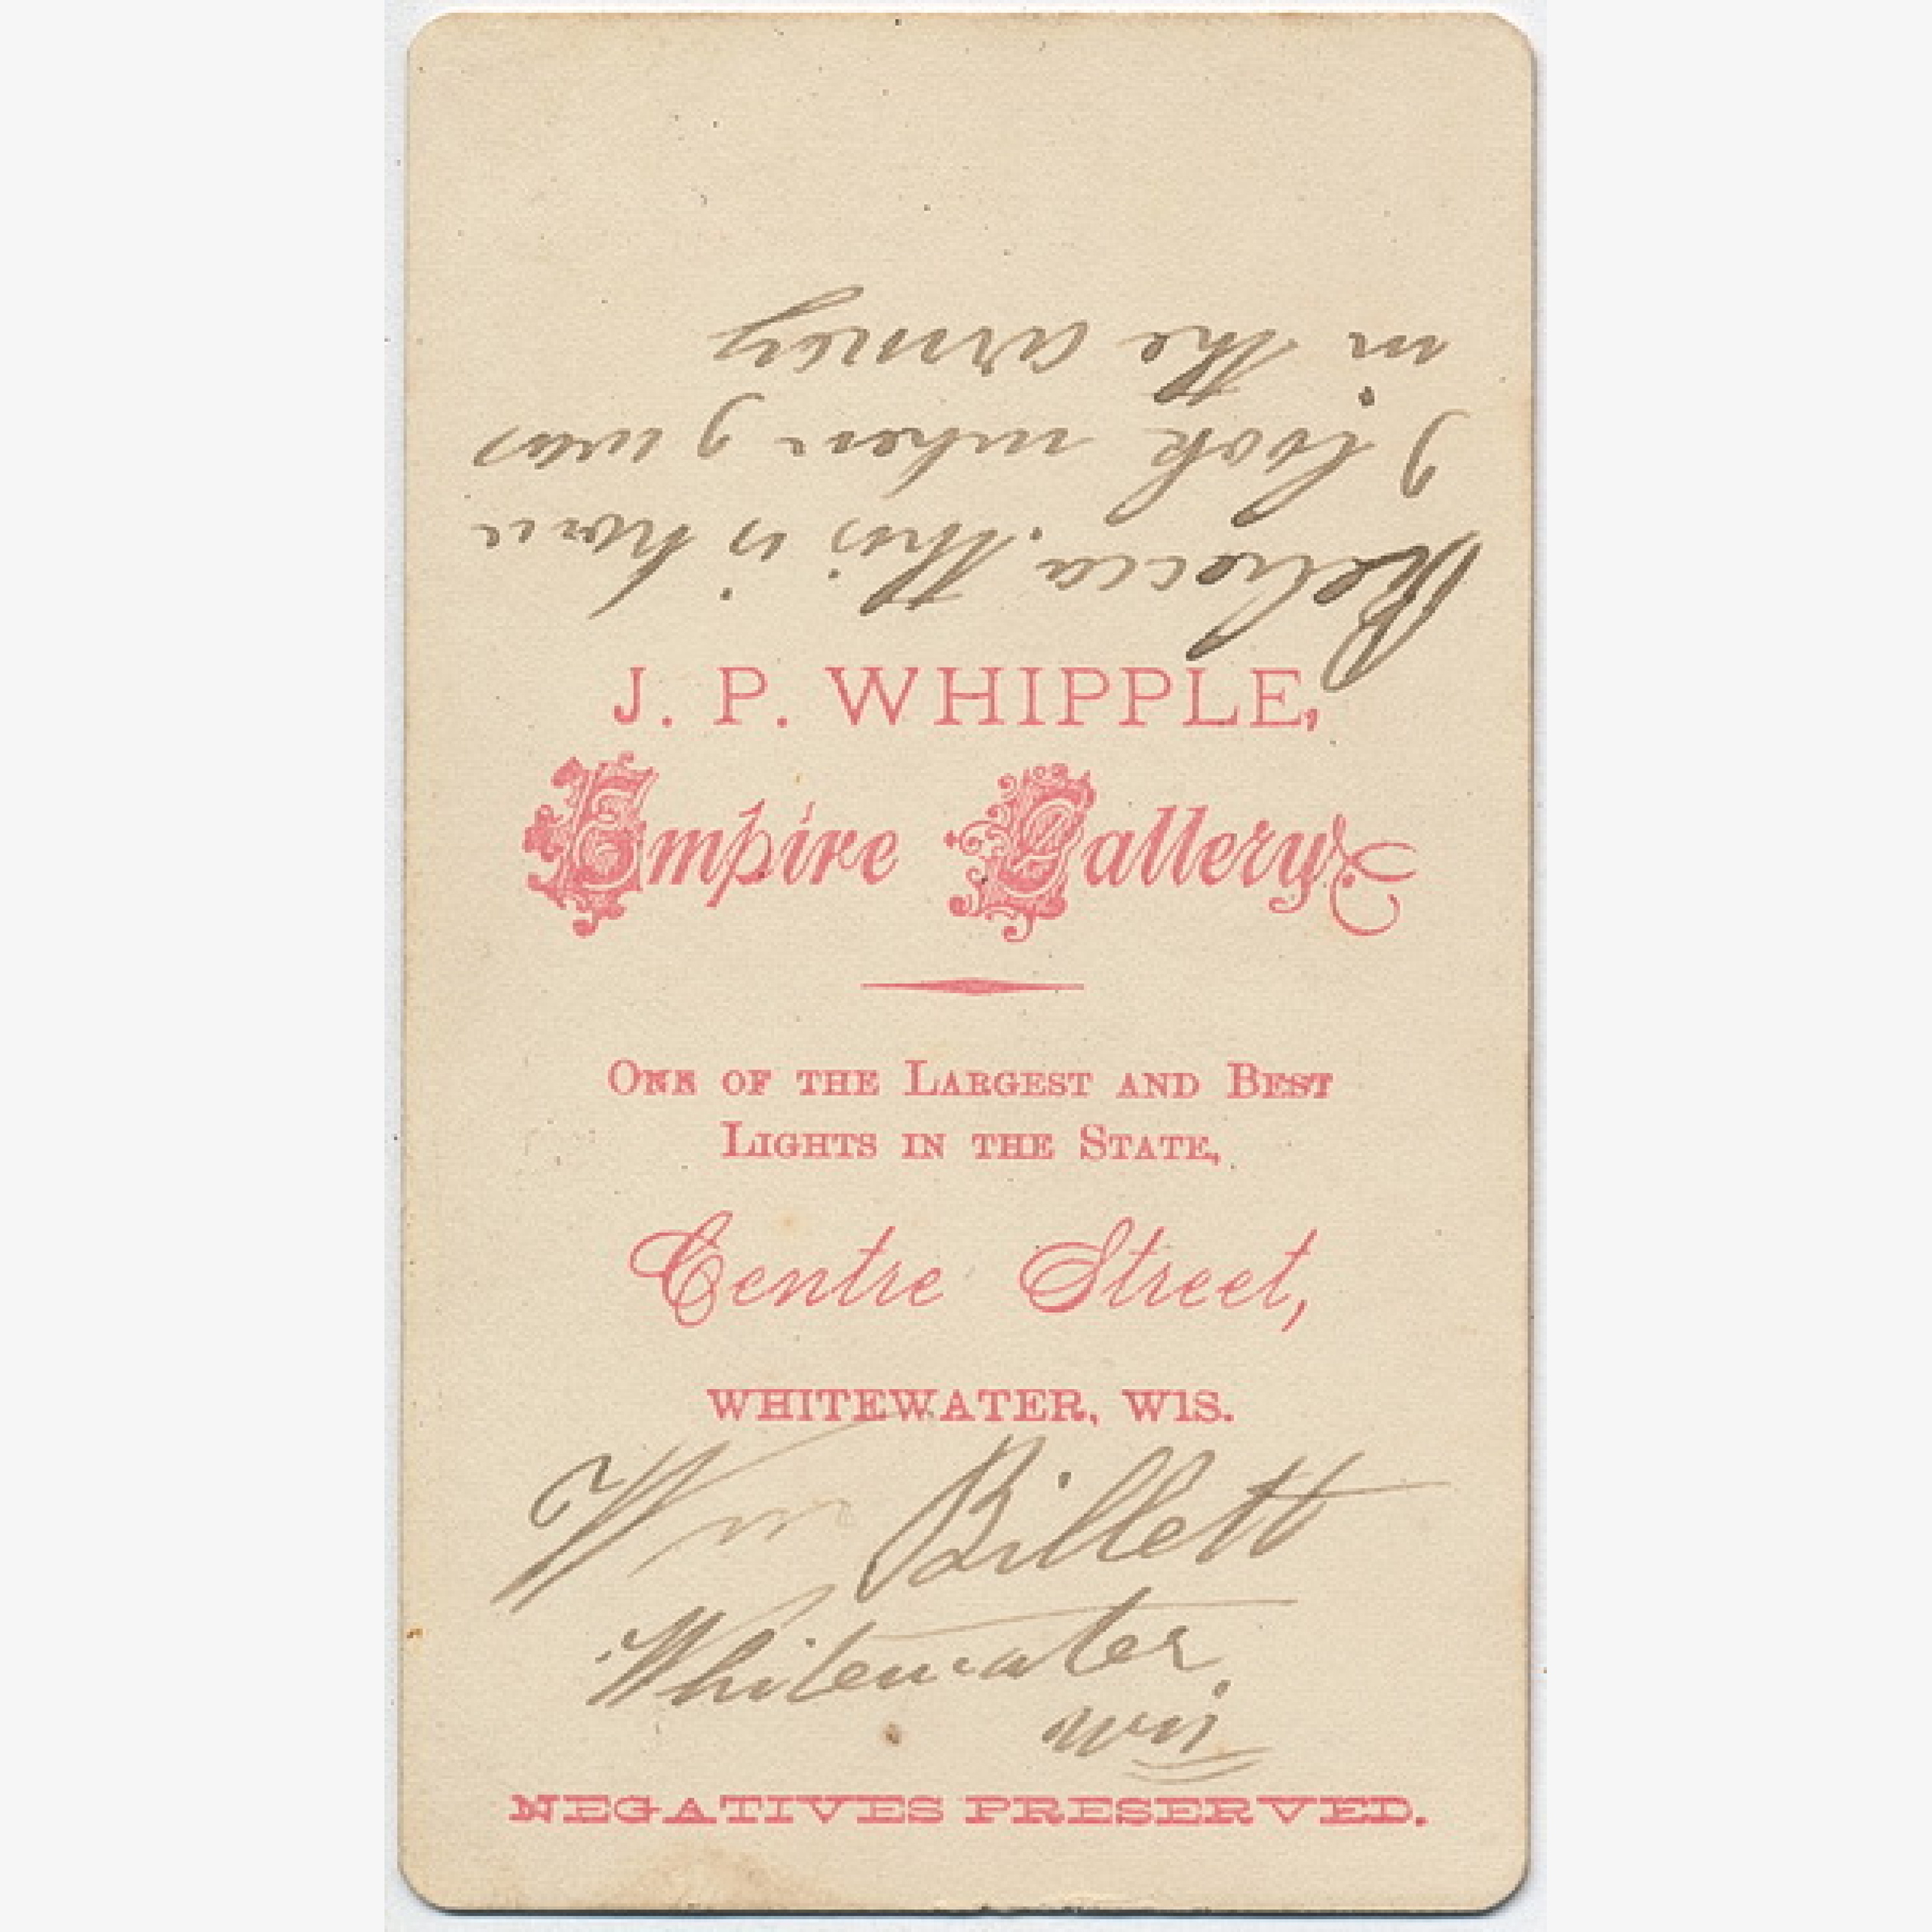 Rebecca. this is how
I look when I was
in the army
J. P. WHIPPLE,
Empire Gallery,
ONE OF THE LARGEST AND BEST
LIGHTS IN THE STATE,
Centre Street,
WHITEWATER, WIS.
Wm Billett
Whitewater
Wis
NEGATIVES PRESERVED.